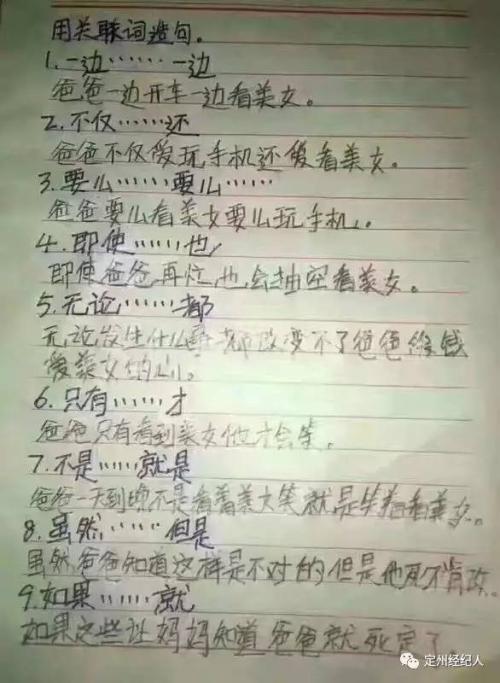 用关联词造句。
1.一边……一边
爸爸一边开车一边看美女。
2.不仅……还
爸爸不仅爱玩手机还爱看美女。
3.要么……要么……
爸爸要么看美女要么玩手机。
4.即使……也
即使爸爸再忙,也会抽空看美女。
5.无论……都
无论发生什么事都改变不了爸爸
爱美女的心。
6.只有……才
爸爸只有看到美女他才会笑。
7.不是……就是
爸爸一天到晚不是看着美女笑就是笑着看美女。
8.虽然……但是
虽然爸爸知道这样是不对的但是他死不肯改。
9.如果……就
如果这些让妈妈知道爸爸就死定了。
定州经纪人